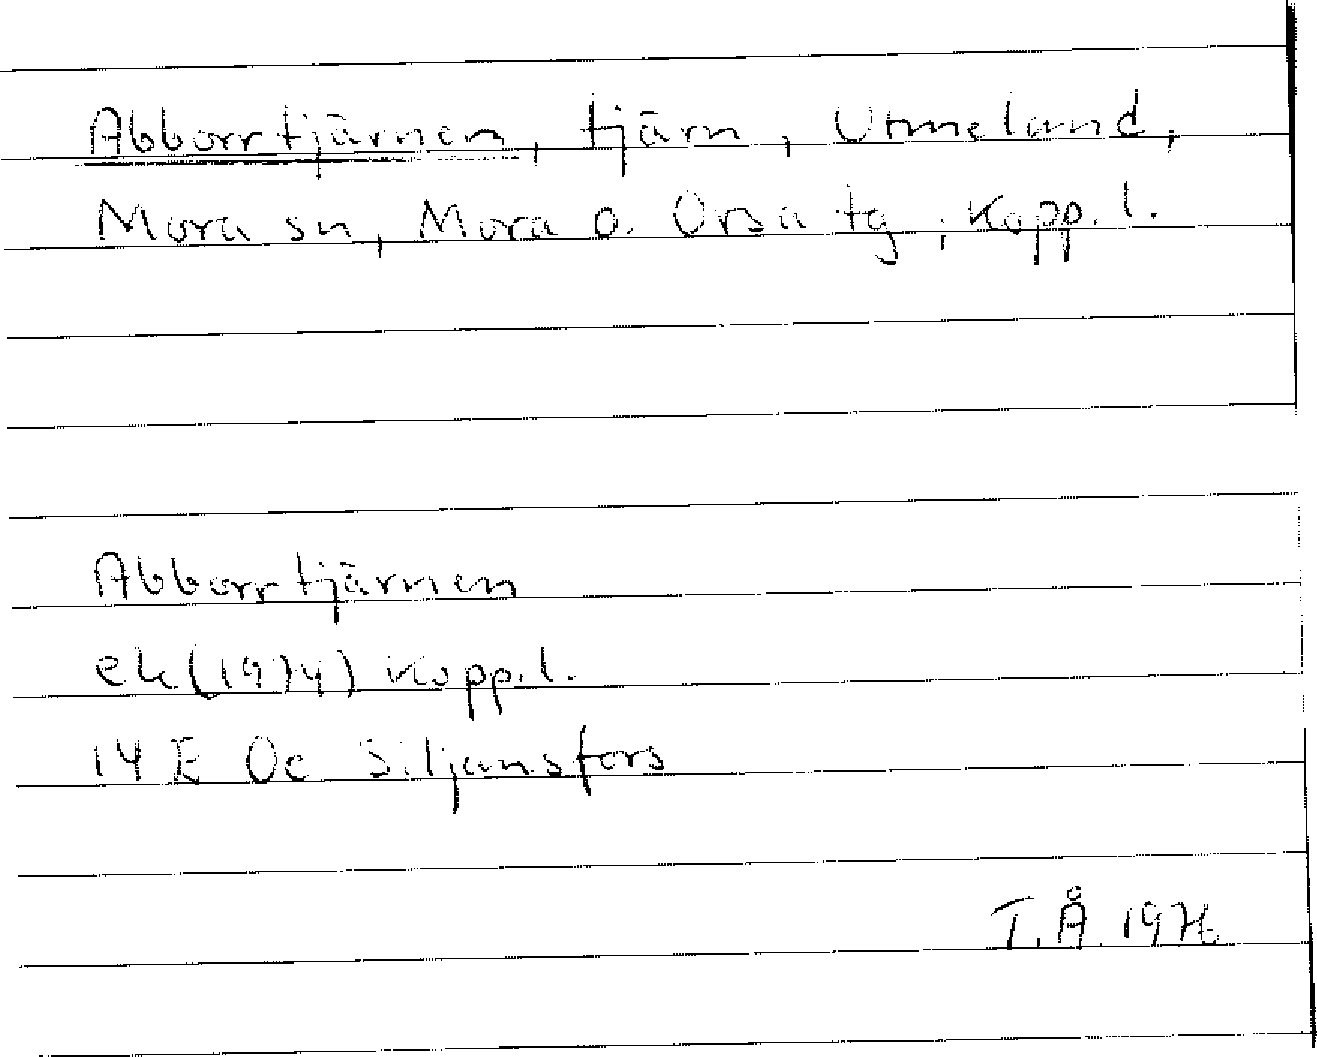 Abborrtjärnen, tjärn, Utmeland,
Mora sn, Mora o. Orsa tg, Kopp. l.
Abborrtjärnen
ek (1974) Kopp. l.
14 E 0c Siljansfors
T.Å. 1976